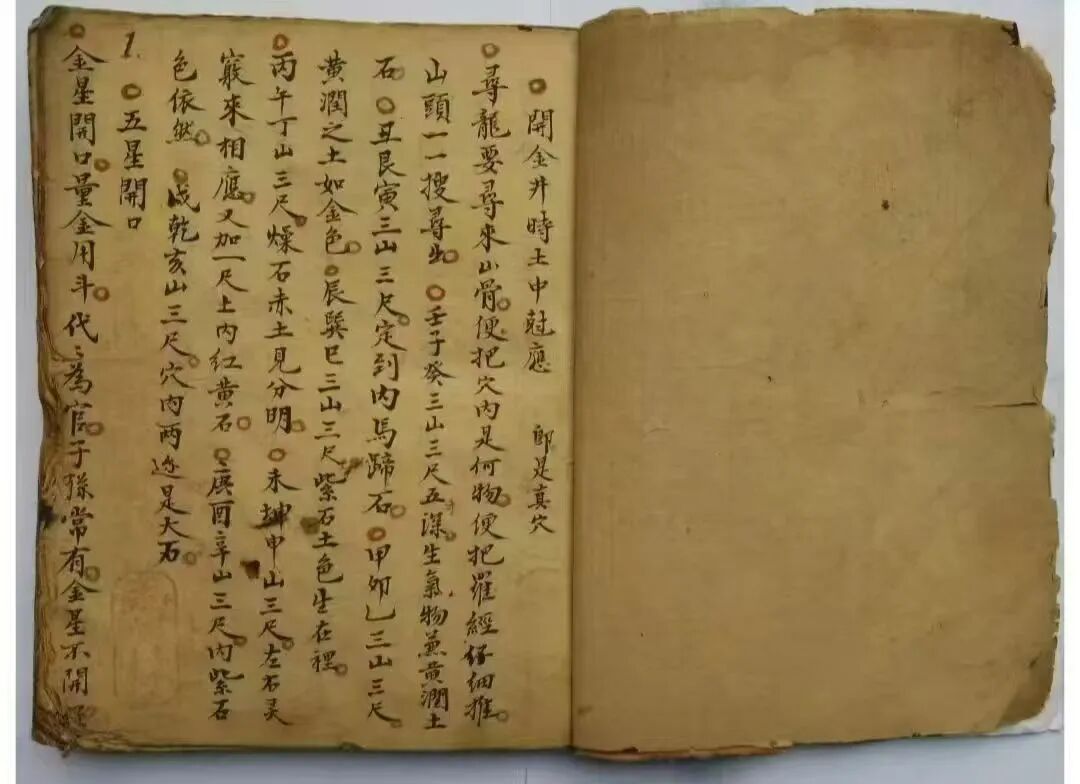 開金井時土中尅應 郎是真穴
尋龍要尋來山骨便把穴內是何物便把羅經仔細推
山頭一一搜尋出壬子癸三山三尺五寸深生氣物兼黃潤土
石丑艮寅三山三尺定到內馬蹄石甲卯乙三山三尺
黃潤之土如金色辰巽巳三山三尺紫石土色生在裡
丙午丁山三尺燥石赤土見分明未坤申山三尺左石灵
竅來相應又加一尺上內紅黃石庚酉辛山三尺內紫石
色依然戌乾亥山三尺穴內兩边是大石
1.五星開口
金星開口量金用斗代〻為官子孫常有金星不開